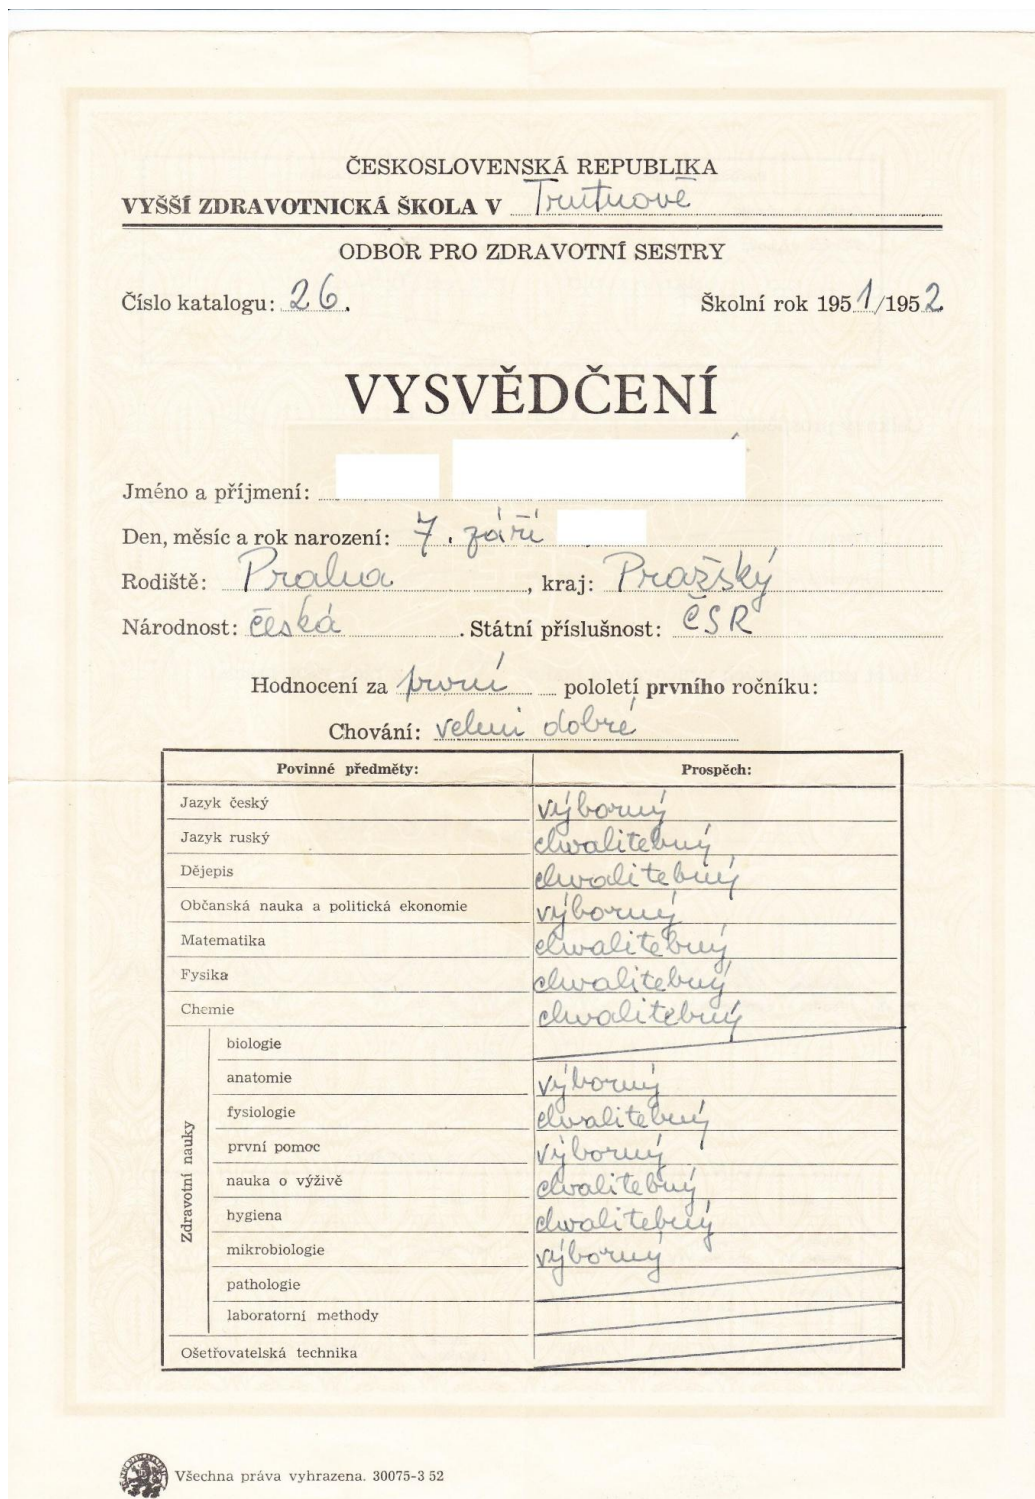 ČESKOSLOVENSKÁ REPUBLIKA
VYŠŠÍ ZDRAVOTNICKÁ ŠKOLA V Trutnově
ODBOR PRO ZDRAVOTNÍ SESTRY
Číslo katalogu: 26. Školní rok 1951/1952
VYSVĚDČENÍ
Jméno a příjmení:
Den, měsíc a rok narození: 7. září
Rodiště: Praha, kraj: Pražský
Národnost: česká. Státní příslušnost: ČSR
Hodnocení za první pololetí prvního ročníku:
Chování: velmi dobré
Povinné předměty: Prospěch:
Jazyk český výborný
Jazyk ruský chvalitebný
Dějepis chvalitebný
Občanská nauka a politická ekonomie výborný
Matematika chvalitebný
Fysika chvalitebný
Chemie chvalitebný
Zdravotní nauky
biologie
anatomie výborný
fysiologie chvalitebný
první pomoc výborný
nauka o výživě chvalitebný
hygiena chvalitebný
mikrobiologie výborný
pathologie
laboratorní methody
Ošetřovatelská technika
Všechna práva vyhrazena. 30075-3 52